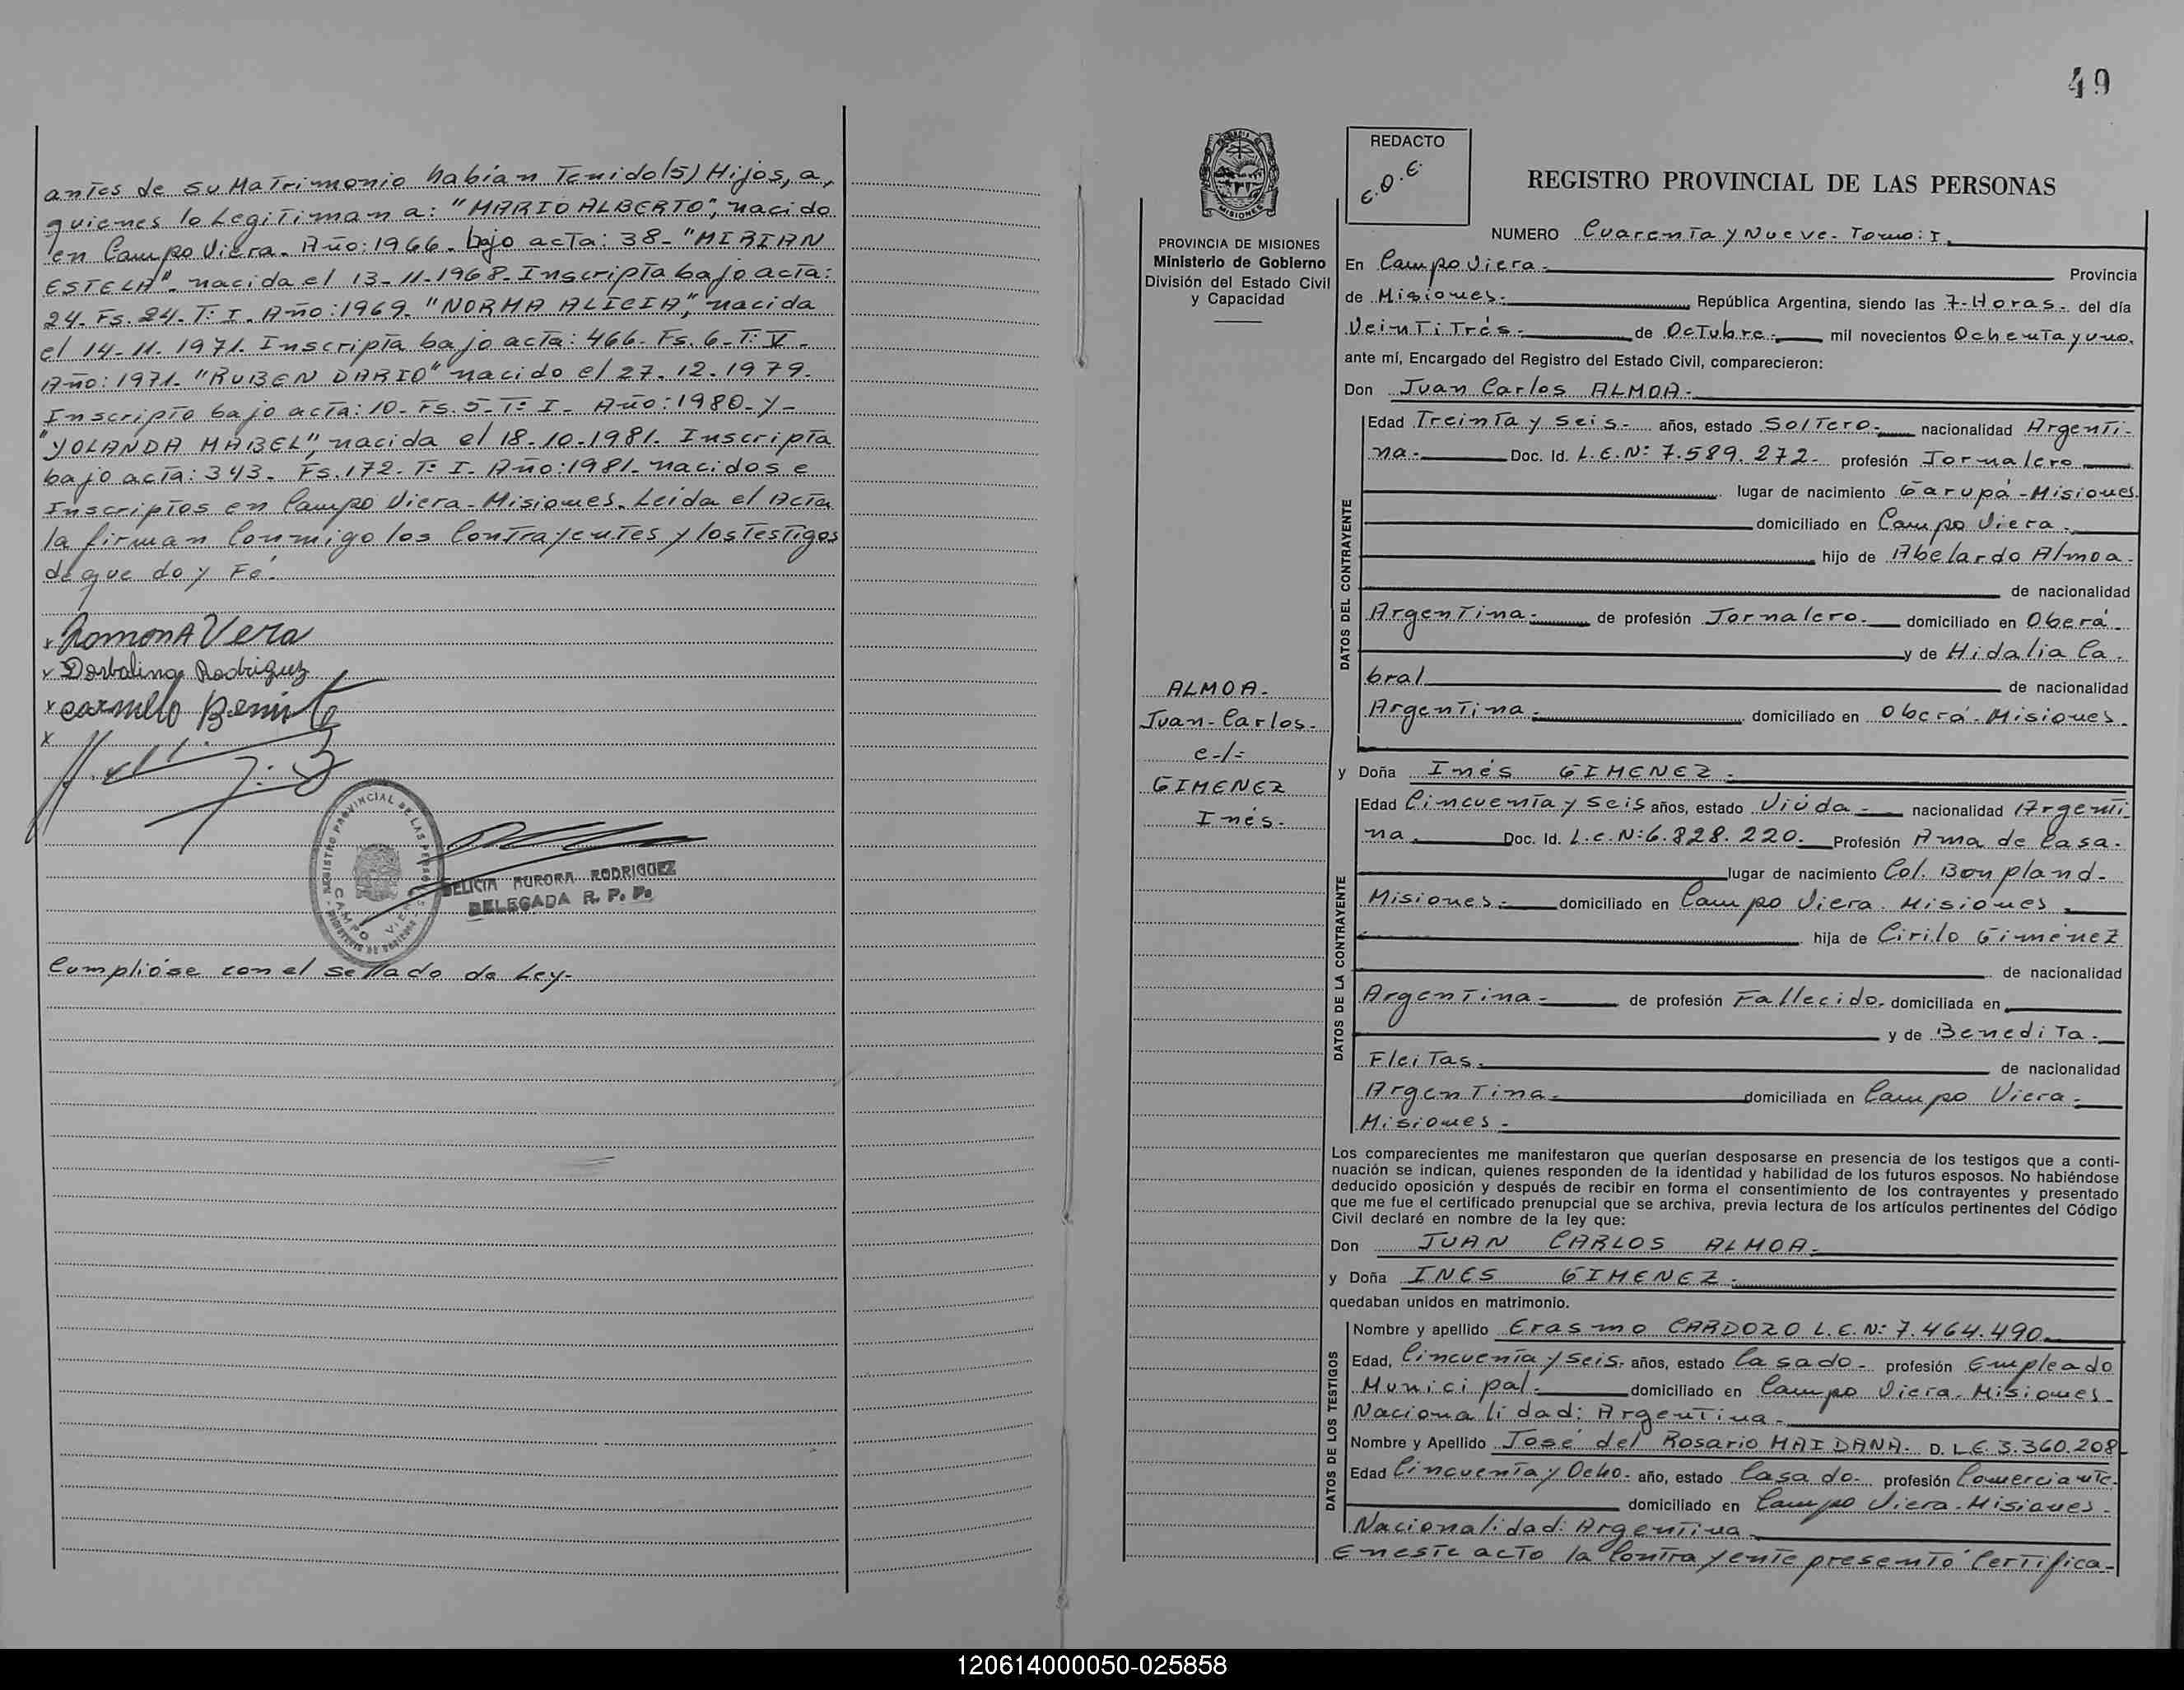 antes de su Matrimonio habían Tenido (5) Hijos, a,
quienes lo Legitiman a: "MARIO ALBERTO", nacido
en Campo Viera. Año: 1966. bajo acta: 38- "MIRIAN
ESTELA". nacida el 13-11-1968- Inscripta bajo acta:
24. Fs. 24. T: I. Año: 1969. "NORMA ALICIA", nacida
el 14-11. 1971. Inscripta bajo acta: 466- Fs. 6- T: V-
Año: 1971- "RUBEN DARIO" nacido el 27. 12. 1979.
Inscripto bajo acta: 10- Fs. 5- T: I- Año: 1980- y-
"YOLANDA MABEL", nacida el 18-10-1981. Inscripta
bajo acta: 343- Fs. 172- T: I. Año: 1981- nacidos e
Inscriptos en Campo Viera-Misiones. Leida el Acta
la firman Conmigo los Contrayentes y los Testigos
de que doy Fé.
x RomonA Vera
x Dorbalina Rodriguez
x carmelo Benite
x
REGISTRO PROVINCIAL DE LAS PERSONAS
CAMPO VIERA
AURORA RODRIGUEZ
DELEGADA R. P. P.
Cumplióse con el sellado de Ley-
49
MISIONES
PROVINCIA DE MISIONES
Ministerio de Gobierno
División del Estado Civil
y Capacidad
ALMOA-
Juan-Carlos-
c-/-
GIMENEZ
Inés-
REDACTO
E.O.E.
REGISTRO PROVINCIAL DE LAS PERSONAS
NUMERO Cuarenta y Nueve- Tomo: I.
En Campo Viera- Provincia
de Misiones- República Argentina, siendo las 7-Horas- del día
Veinti Trés- de Octubre- mil novecientos Ochenta y uno.
ante mí, Encargado del Registro del Estado Civil, comparecieron:
Don Juan Carlos ALMOA-
DATOS DEL CONTRAYENTE
Edad Treinta y Seis- años, estado Soltero- nacionalidad Argenti-
na- Doc. Id. L.E. N: 7.589.272- profesión Jornalero
lugar de nacimiento Garupá-Misiones.
domiciliado en Campo Viera-
hijo de Abelardo Almoa-
de nacionalidad
Argentina- de profesión Jornalero- domiciliado en Oberá-
y de Hidalia Ca-
bral de nacionalidad
Argentina- domiciliado en Oberá-Misiones-
y Doña Inés GIMENEZ-
DATOS DE LA CONTRAYENTE
Edad Cincuenta y Seis años, estado Viúda- nacionalidad Argenti-
na- Doc. Id. L.C. N: 6.828.220- Profesión Ama de Casa-
lugar de nacimiento Col. Bonpland-
Misiones- domiciliado en Campo Viera. Misiones-
hija de Cirilo Giménez
de nacionalidad
Argentina- de profesión Fallecido. domiciliada en
y de Benedita-
Fleitas- de nacionalidad
Argentina- domiciliada en Campo Viera-
Misiones-
Los comparecientes me manifestaron que querían desposarse en presencia de los testigos que a conti-
nuación se indican, quienes responden de la identidad y habilidad de los futuros esposos. No habiéndose
deducido oposición y después de recibir en forma el consentimiento de los contrayentes y presentado
que me fue el certificado prenupcial que se archiva, previa lectura de los artículos pertinentes del Código
Civil declaré en nombre de la ley que:
Don JUAN CARLOS ALMOA-
y Doña INES GIMENEZ-
quedaban unidos en matrimonio.
DATOS DE LOS TESTIGOS
Nombre y apellido Erasmo CARDOZO L.E. N: 7.464.490
Edad, Cincuenta y Seis- años, estado Casado- profesión Empleado
Municipal- domiciliado en Campo Viera-Misiones-
Nacionalidad: Argentina-
Nombre y Apellido José del Rosario MAIDANA- D. L.E. 3.360.208-
Edad Cincuenta y Ocho- año, estado Casado- profesión Comerciante-
domiciliado en Campo Viera-Misiones-
Nacionalidad: Argentina-
En este acto la Contrayente presentó Certifica-
120614000050-025858